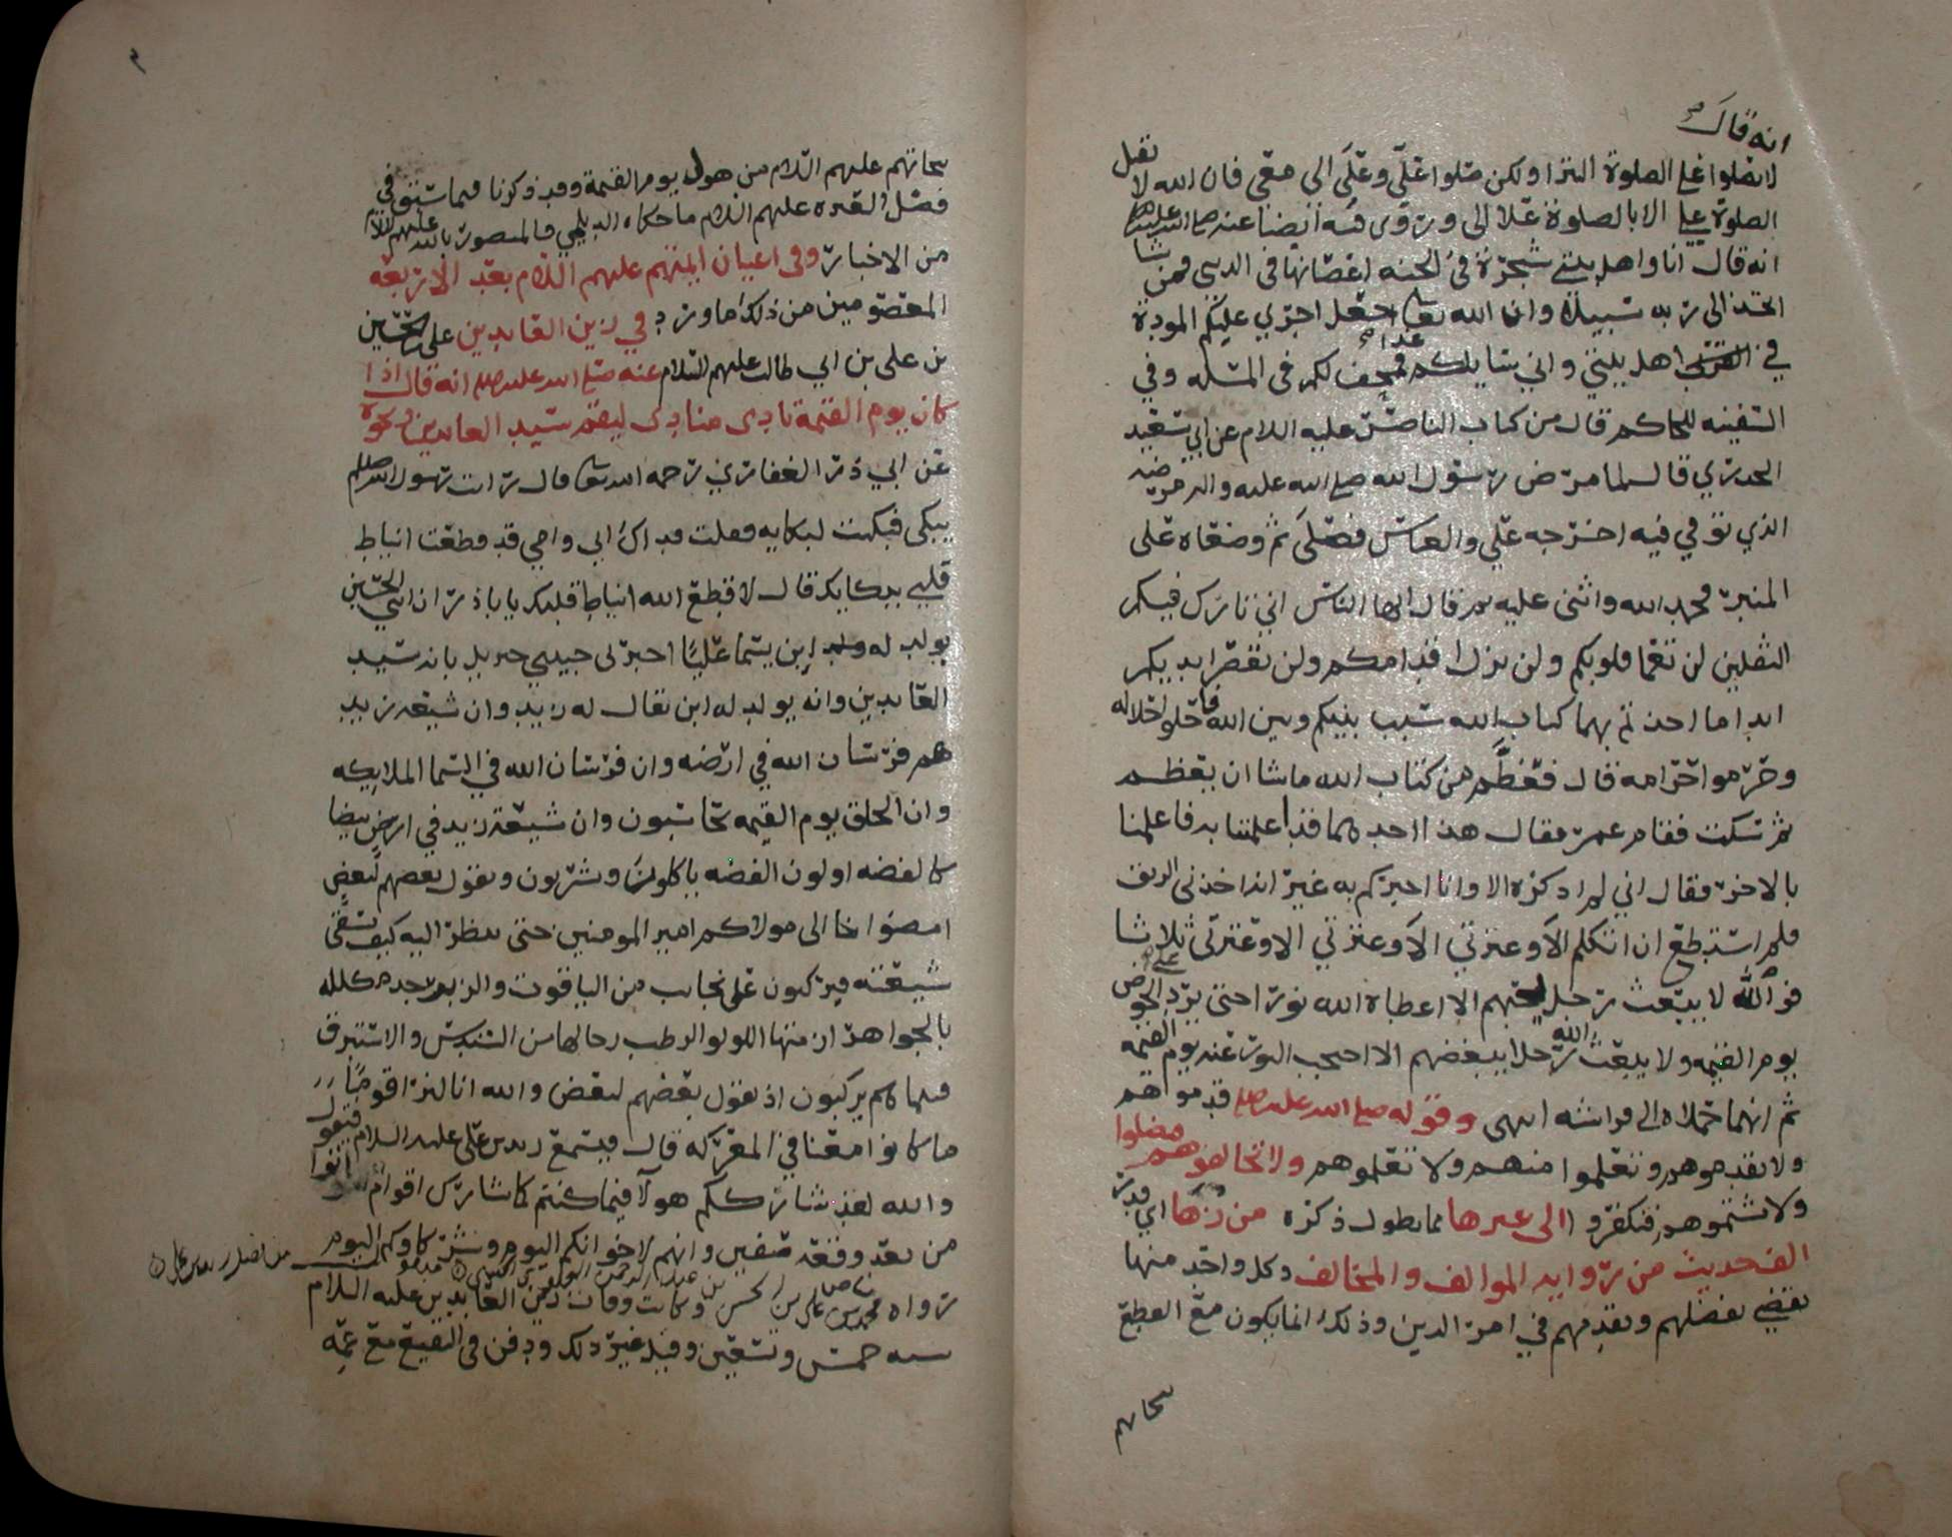 انه قال
لا تصلوا علي الصلوة البترا ولكن صلوا علَيَّ وعلى الي معي فان الله لا يقبل
الصلوة علي الا بالصلوة على الي وروى فيه ايضا عنه صلى الله عليه واله
انه قال انا واهل بيتي شجرة في الجنة اغصانها في الدنيا فمن شا
اتخذ الى ربه سبيلا وان الله تعالى جعل اجري عليكم المودة
في اهل بيتي واني سايلكم غدا فمجحف لكم في المسله وفي
السفينه للحاكم قال من كتاب الناصر عليه السلام عن ابي سعيد
الخدري قال لما مرض رسول الله صلى الله عليه واله مرضه
الذي توفي فيه اخرجه علي والعباس فصلى ثم وضعاه على
المنبر فحمد الله واثنى عليه ثم قال ايها الناس اني تارك فيكم
الثقلين لن تعما قلوبكم ولن تزل اقدامكم ولن تقصر ايديكم
ابدا ما اخذتم بهما كتاب الله سبب بينكم وبين الله فاحلوا حلاله
وحرموا حرامه قال فعظم من كتاب الله ماشا ان يعظم
ثم سكت فقام عمر فقال هذا احدهما قد اعلمتنا به فاعلمنا
بالاخر فقال اني لم اذكره الا وانا اخبركم به غير انه اخذني الربو
فلم استطع ان اتكلم الا وعترتي الا وعترتي الا وعترتي ثلاثا
فوالله لا يبعث رجل يحبهم الا اعطاه الله نورا حتى يرد علي الحوض
يوم القيمه ولا يبعث الله رجلا يبغضهم الا احتجب النور عنه يوم القيمه
ثم انهما حملاه الى فراشه انتهى وقوله صلى الله عليه صلم قدموهم
ولا تقدموهم وتعلموا منهم ولا تعلموهم ولا تخالفوهم فتضلوا
ولا تشتموهم فتكفروا الى غيرها مما يطول ذكره من زها الي قدر
الف حديث من رواية الموالف والمخالف وكل واحد منها
يقضي بفضلهم وتقدمهم في امر الدين وذلك انما يكون مع القطع
نجاتهم
نجاتهم عليهم السلام من هول يوم القيمة وقد ذكرنا فيما سبق في
فضل العتره عليهم السلام ما حكاه الديلمي والمنصور بالله عليهم السلام
من الاخبار وفي اعيان ايمتهم عليهم السلام بعد الاربعة
المعصومين من ذلك ما ورد في زين العابدين علي بن الحسين
بن علي بن ابي طالب عليهم السلام عنه صلى الله عليه صلم انه قال اذا
كان يوم القيمة نادى منادى ليقم سيد العابدين ونحوه
عن ابي ذر الغفاري رحمه الله تعالى قال رايت رسول الله صلم
يبكى فبكيت لبكايه فقلت فداك ابي وامي قد قطعت انياط
قلبي ببكايك قال لا قطع الله انياط قلبك يابا ذر ان ابني الحسين
يولد له ابن يسما عليًّا اخبرني حبيبي جبريل بانه سيد
العابدين وانه يولد له ابن يقال له زيد وان شيعه زيد
هم فرسان الله في ارضه وان فرسان الله في السما الملايكه
وان الخلق يوم القيمه يحاسبون وان شيعة زيد في ارض بيضا
كالفضه او لون الفضه ياكلون ويشربون ويقول بعضهم لبعض
امضوا بنا الى مولاكم امير المومنين حتى ننظر اليه كيف يسقى
شيعته فيركبون على نجايب من الياقوت والزبرجد مكلله
بالجواهر ازمتها اللولو الرطب رحالها من السندس والاستبرق
فبينما هم يركبون اذ يقول بعضهم لبعض والله انا لنرا اقوما
ما كانوا معنا في المعركه قال فيسمع زيد بن علي عليه السلام فيقول
والله لقد شاركم هولآ فيما كنتم كما شارك اقوام اتوا
من بعد وقعة صفين وانهم لاخوانكم اليوم وشركاوكم اليوم
رواه محمد بن علي بن الحسن وكانت وفات زين العابدين عليه السلام
سنه خمس وتسعين وقيل غير ذلك ودفن في البقيع مع عمه